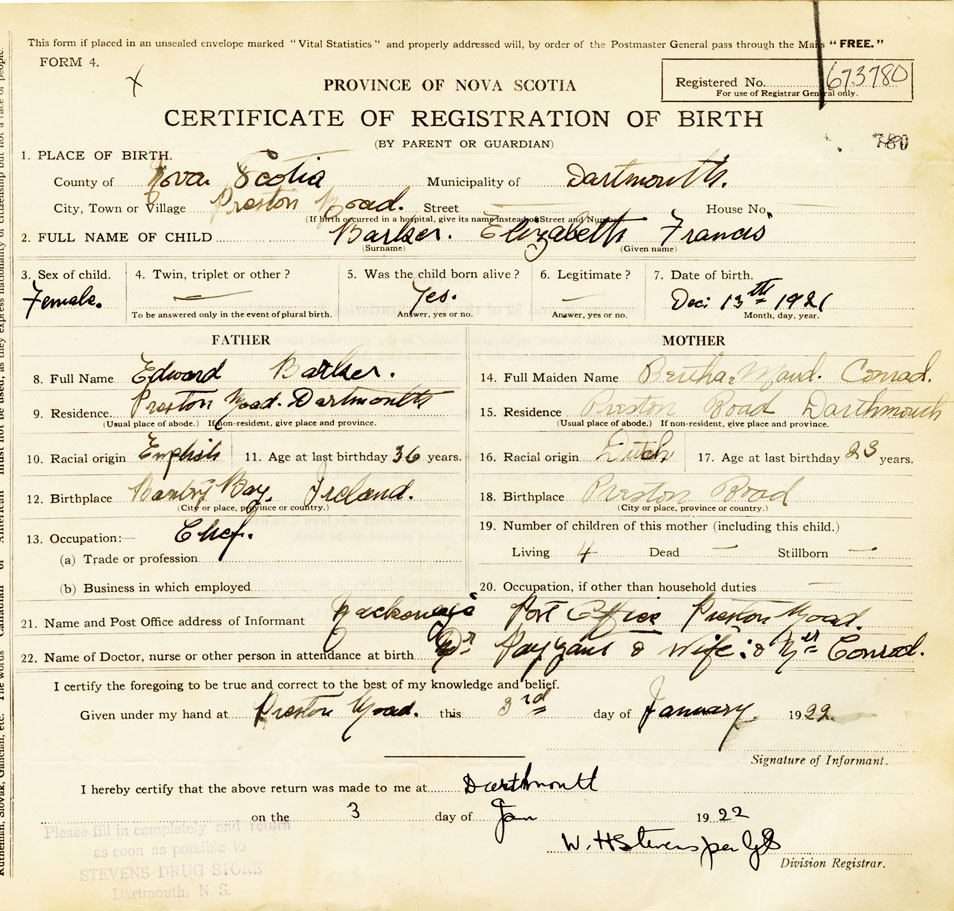 This form if placed in an unsealed envelope marked "Vital Statistics" and properly addressed will, by order of the Postmaster General pass through the Mails "FREE."
FORM 4.
X
PROVINCE OF NOVA SCOTIA
Registered No. 673780
For use of Registrar General only.
CERTIFICATE OF REGISTRATION OF BIRTH
(BY PARENT OR GUARDIAN)
780
1. PLACE OF BIRTH.
County of Nova Scotia Municipality of Dartmouth.
City, Town or Village Preston Road. Street House No.
(If birth occurred in a hospital, give its name instead of Street and Number)
2. FULL NAME OF CHILD Barker. Elizabeth Francis
(Surname) (Given name)
3. Sex of child. 4. Twin, triplet or other? 5. Was the child born alive? 6. Legitimate? 7. Date of birth.
Female. — Yes. — Dec: 13th 1921
To be answered only in the event of plural birth. Answer, yes or no. Answer, yes or no. Month, day, year.
FATHER MOTHER
8. Full Name Edward Barker. 14. Full Maiden Name Bertha Maud. Conrad.
9. Residence. Preston Road. Dartmouth 15. Residence Preston Road Darthmouth
(Usual place of abode.) If non-resident, give place and province. (Usual place of abode.) If non-resident, give place and province.
10. Racial origin English 11. Age at last birthday 36 years. 16. Racial origin Dutch 17. Age at last birthday 23 years.
12. Birthplace Bay. Ireland. 18. Birthplace Preston Road
(City or place, province or country.) (City or place, province or country.)
19. Number of children of this mother (including this child.)
13. Occupation:— Chef.
(a) Trade or profession Living 4 Dead — Stillborn —
(b) Business in which employed 20. Occupation, if other than household duties —
21. Name and Post Office address of Informant Post Office Preston Road.
22. Name of Doctor, nurse or other person in attendance at birth Dr Payzant & Wife: & Conrad.
I certify the foregoing to be true and correct to the best of my knowledge and belief.
Given under my hand at Preston Road. this 3rd day of January 1922.
Signature of Informant.
I hereby certify that the above return was made to me at Darthmouth
on the 3 day of Jan 1922
W. H Stevens per
Division Registrar.
Please fill in completely and return
as soon as possible to
STEVENS DRUG STORE
Dartmouth, N. S.